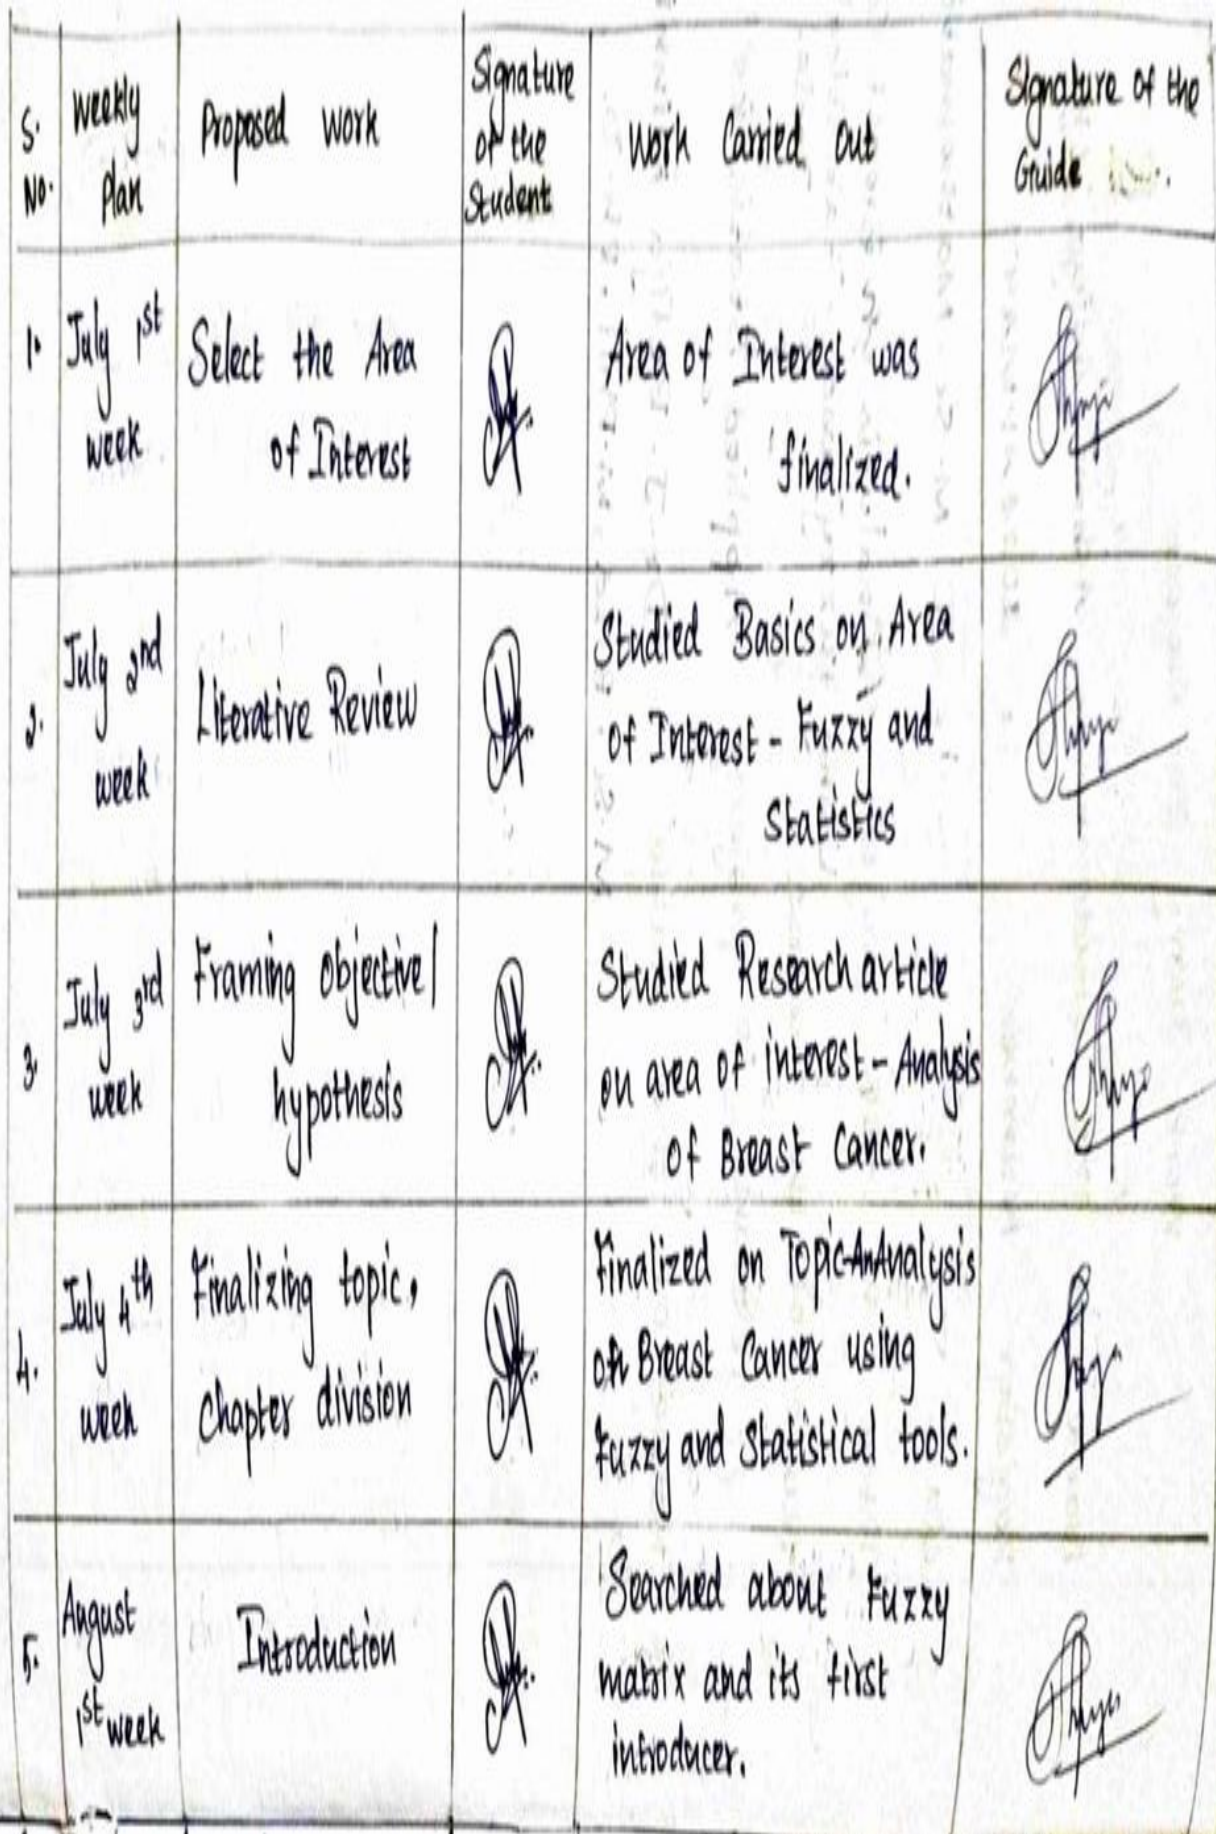 S. No.
Weekly Plan
Proposed Work
Signature of the Student
Work Carried out
Signature of the Guide
1.
July 1st
week
Select the Area
of Interest
Area of Interest was
finalized.
2.
July 2nd
week
Literative Review
Studied Basics on Area
of Interest - Fuzzy and
Statistics
3.
July 3rd
week
Framing objective/
hypothesis
Studied Research article
on area of interest - Analysis
of Breast Cancer.
4.
July 4th
week
Finalizing topic,
chapter division
Finalized on Topic-An Analysis
on Breast Cancer using
Fuzzy and Statistical tools.
5.
August
1st week
Introduction
Searched about Fuzzy
matrix and its first
introducer.